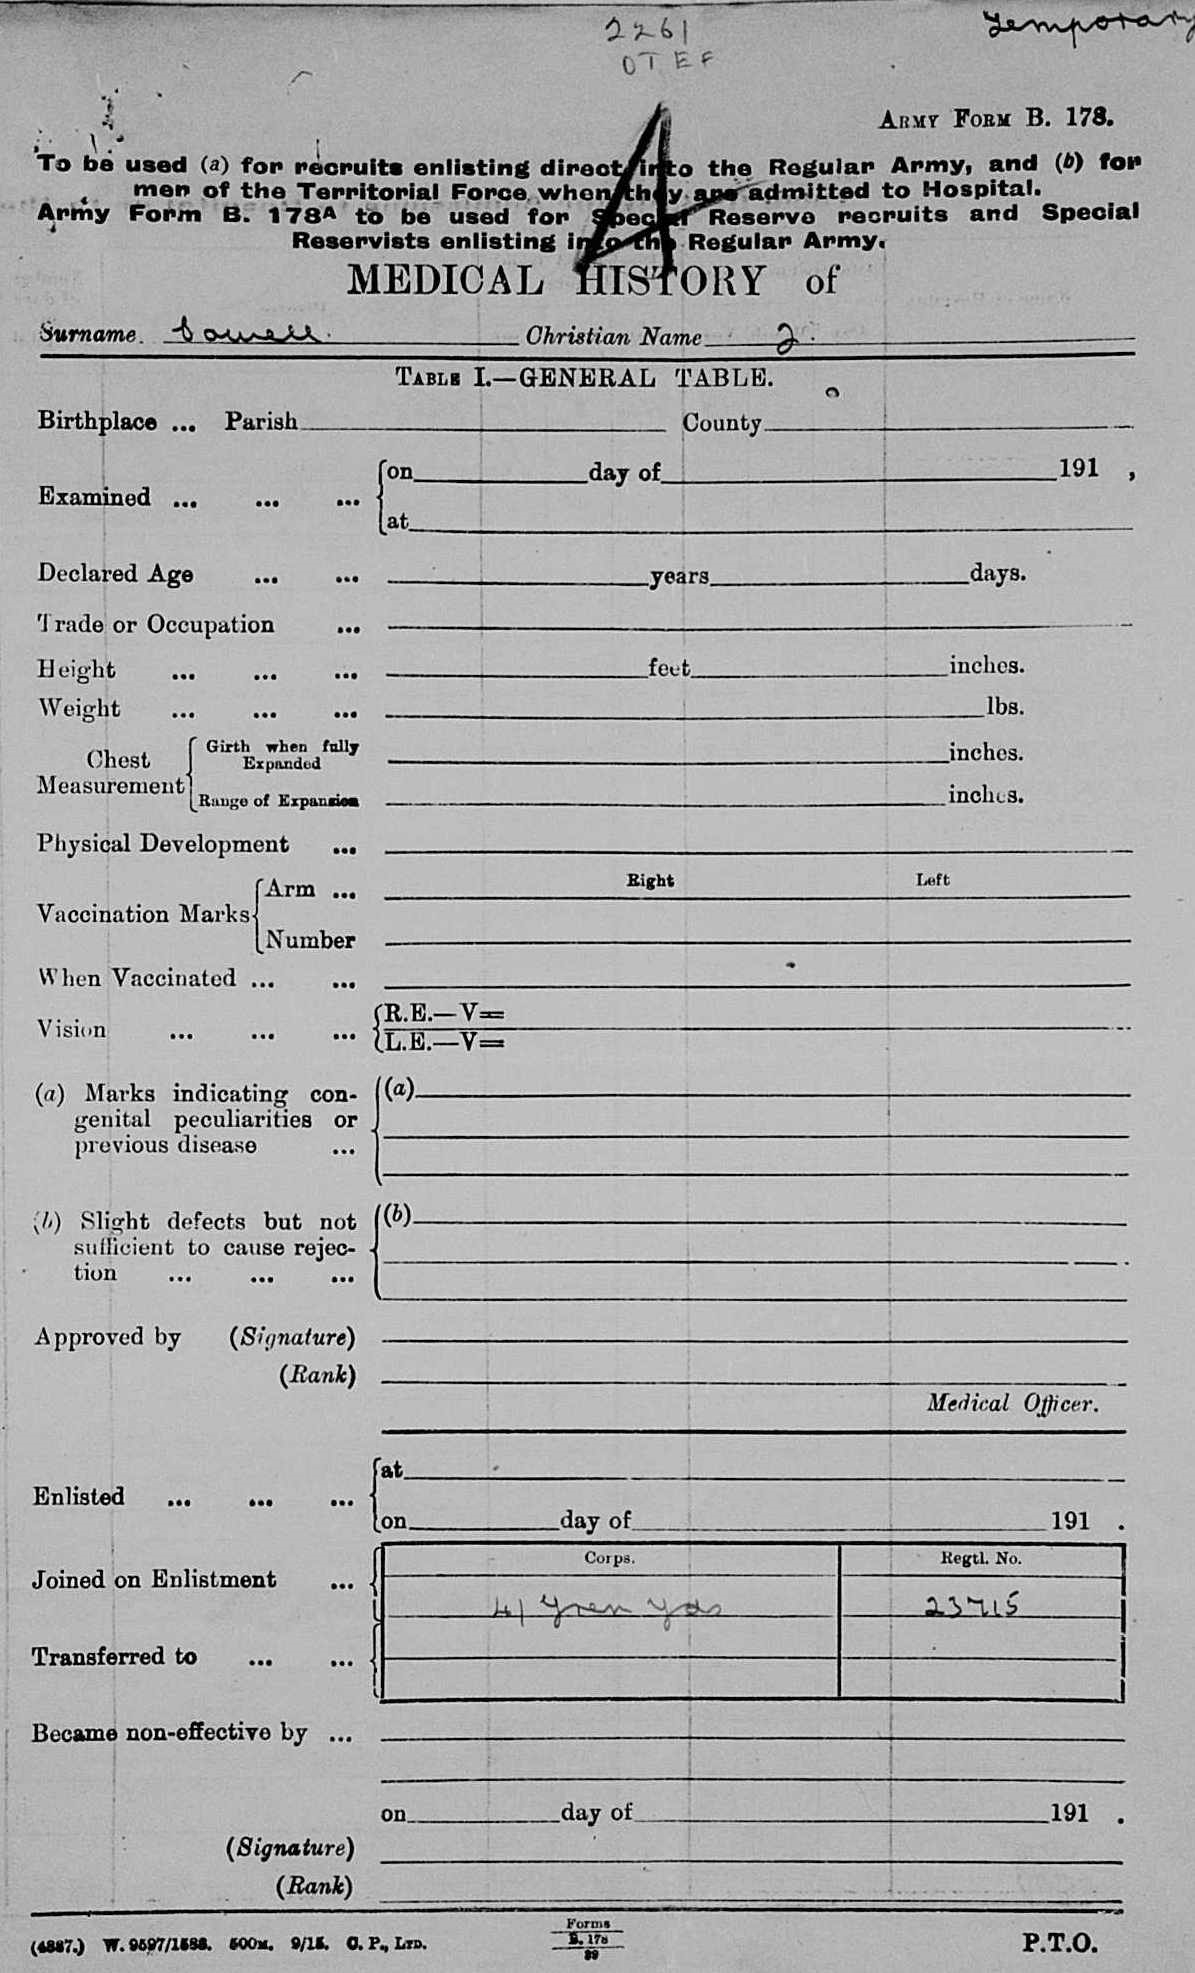 2261
OTEF
Temporary
A
ARMY FORM B. 178.
To be used (a) for recruits enlisting direct into the Regular Army, and (b) for
men of the Territorial Force when they are admitted to Hospital.
Army Form B. 178A to be used for Special Reserve recruits and Special
Reservists enlisting into the Regular Army.
MEDICAL HISTORY of
Surname. Cowell. Christian Name J.
TABLE I.—GENERAL TABLE.
Birthplace ... Parish County
Examined ... ... ... on day of 191 ,
at
Declared Age ... ... years days.
Trade or Occupation ...
Height ... ... ... feet inches.
Weight ... ... ... lbs.
Chest Measurement Girth when fully Expanded inches.
Range of Expansion inches.
Physical Development ...
Right Left
Vaccination Marks Arm ...
Number
When Vaccinated ... ...
Vision ... ... ... R.E.—V=
L.E.—V=
(a) Marks indicating con- (a)
genital peculiarities or
previous disease ...
(b) Slight defects but not (b)
sufficient to cause rejec-
tion ... ... ...
Approved by (Signature)
(Rank)
Medical Officer.
Enlisted ... ... ... at
on day of 191 .
Corps. Regtl. No.
Joined on Enlistment ...
4/ Gren Gds 23715
Transferred to ... ...
Became non-effective by ...
on day of 191 .
(Signature)
(Rank)
(4887.) W. 9597/1588. 500M. 9/15. C. P., LTD. Forms B. 178 / 39 P.T.O.